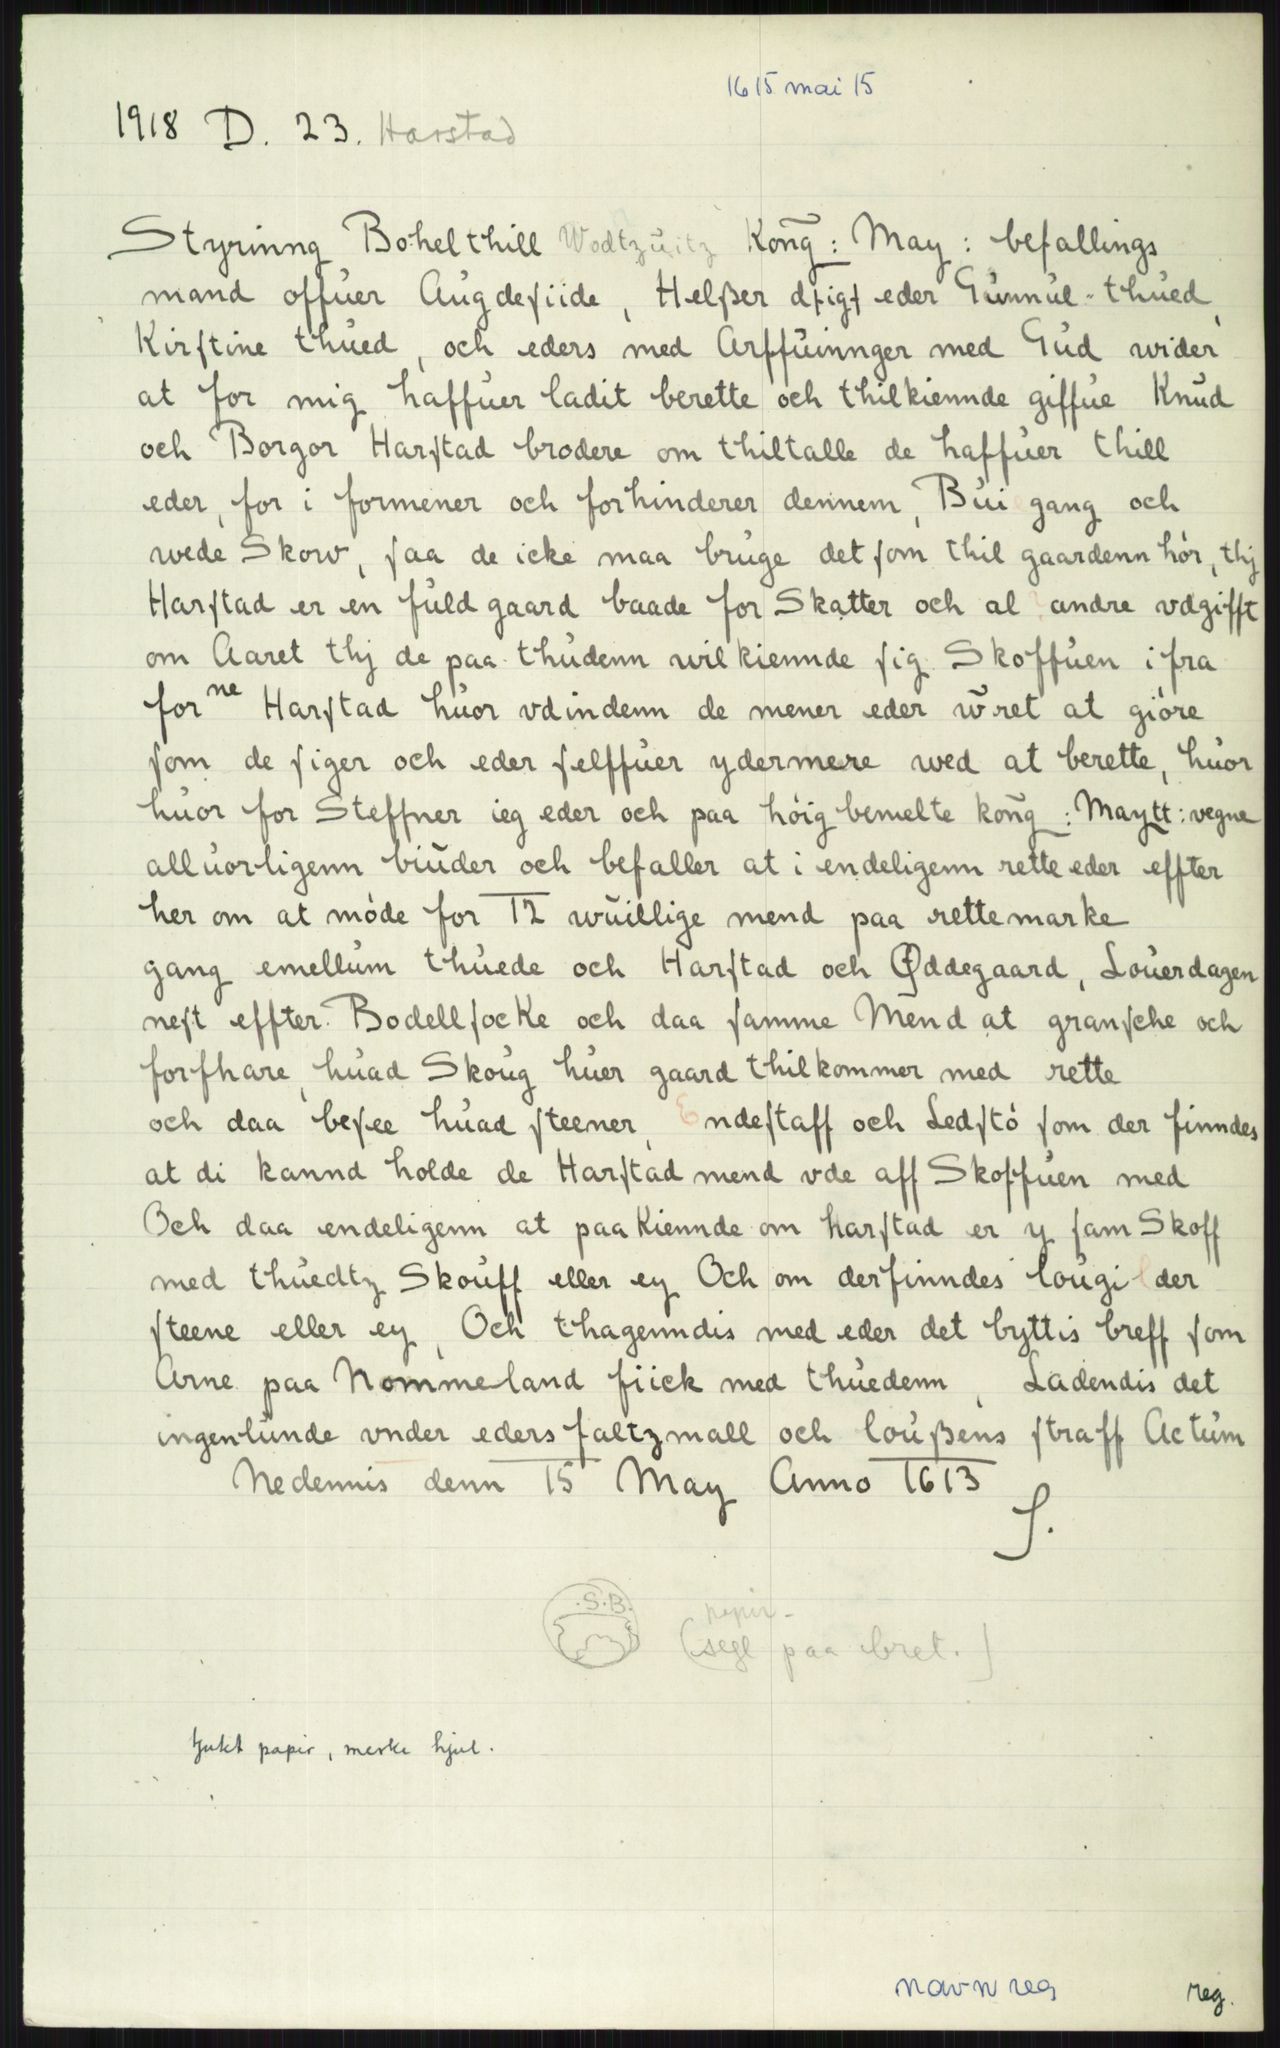 1615 mai 15
1918 D. 23. Harstad
Styrinng Bohelthill Wodtzuitz Kong: May: befallings
mand offuer Augdesiide, Helßer eder Gunnul-thued,
Kirstine thued, och eders med Arffuinnger med Gud wider
at for mig haffuer ladit berette och thilkiennde giffue Knud
och Borgor Harstad brodere om thiltalle de haffuer thill
eder, for i formener och forhinderer dennem, Bui gang och
wede Skow, saa de icke maa bruge det som thil gaardenn hór, thj
Harstad er en fuld gaard baade for Skatter och al andre vdgifft
om Aaret thj de paa thudenn wil kiennde sig Skoffuen i fra
for ne Harstad huor vdindenn de mener eder wret at gióre
som de siger och eder selffuer ydermere wed at berette, huor
huor for Steffner ieg eder och paa hóig bemelte kong: Maytt: vegne
alluorligenn biuder och befaller at i endeligenn rette eder effter
her om at móde for 12 wuillige mend paa rettemarke
gang emellum thuede och Harstad och Øddegaard, Louerdagen
nest effter Bodellsocke och daa samme Mend at gransche och
forfhare, huad Skoug huer gaard thilkommer med rette
och daa besee huad steener, Endestaff och Ledstó som der finndes
at di kannd holde de Harstad mend vde aff Skoffuen med
Och daa endeligenn at paa Kiennde om harstad er y sam Skoff
med thuedtz Skouff eller ey Och om derfinndes lougi der
steene eller ey, Och thagenndis med eder det byttis breff som
Arne paa Nommeland fiick med thuedenn, Ladendis det
ingenlunde vnder eders faltzmall och loußens straff Actum
Nedennis denn 15 May Anno 1613
S.
.S.B.
papir-
(segl paa bret.)
tjukt papir, merke hjul.
navn reg
reg.